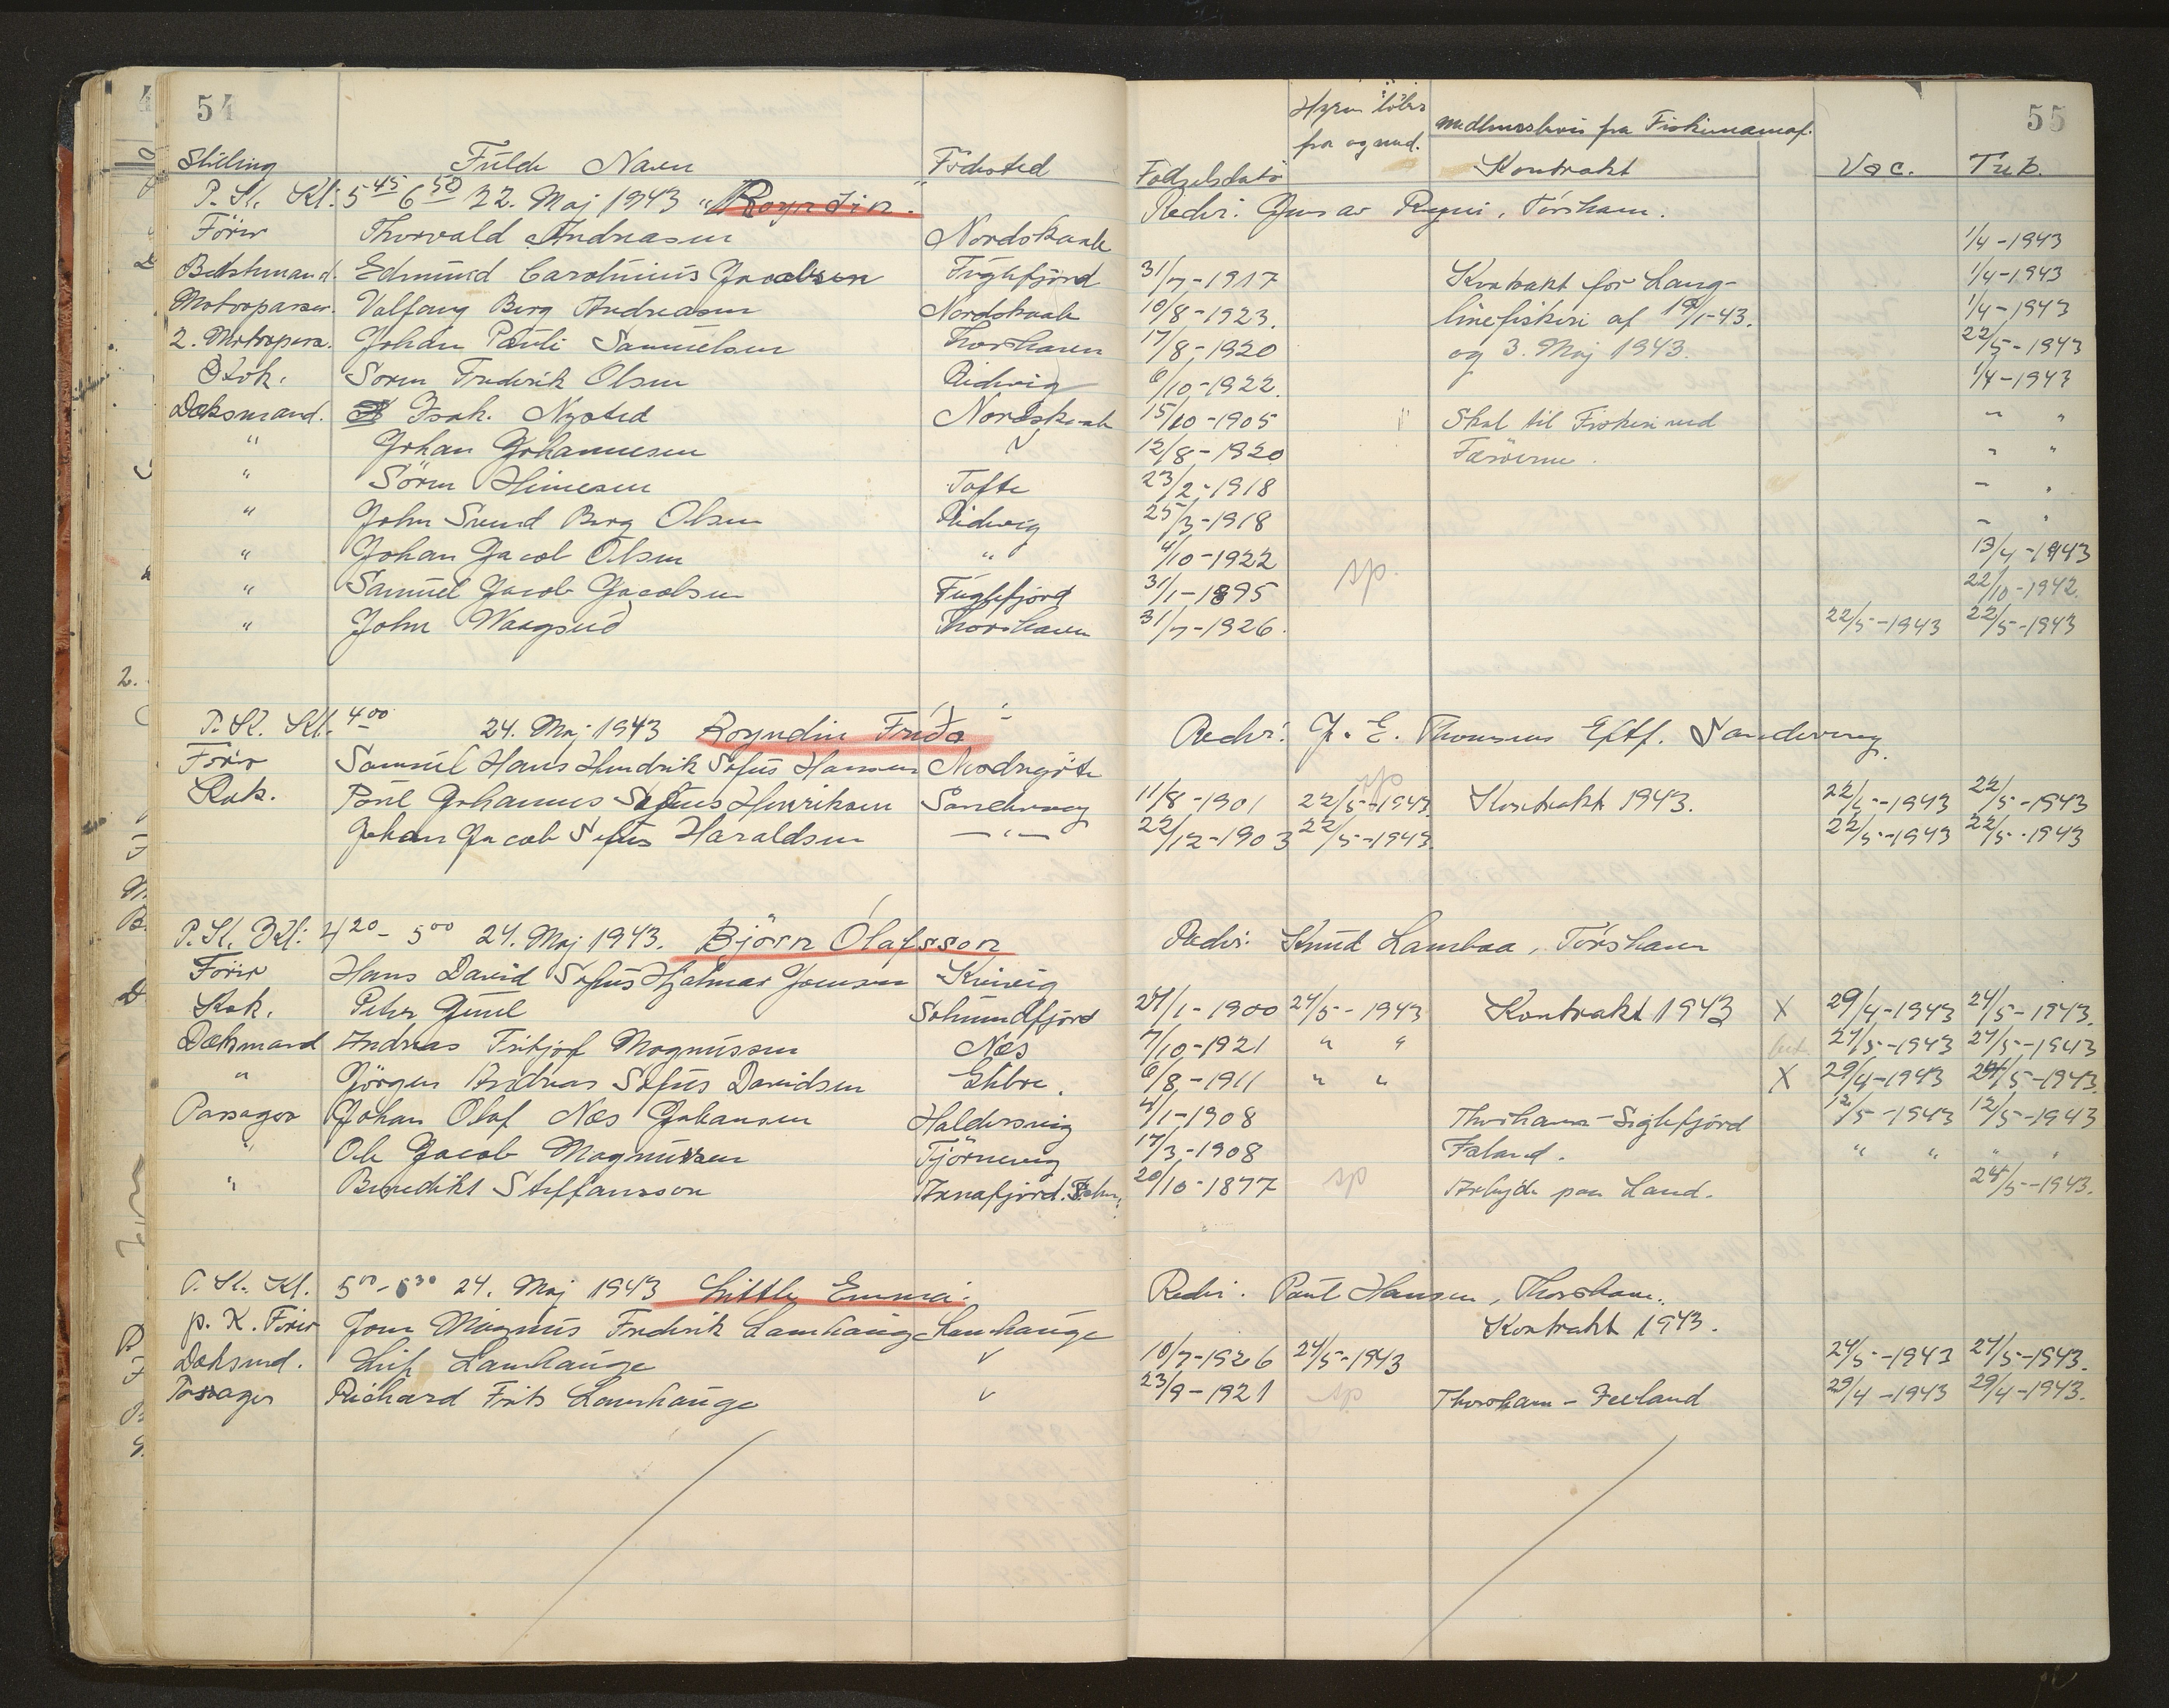 54
55
Stilling Fulde Navn Födested Födselsdato Hyren löber fra og med. Kontrakt Vac. Tub.
P. Sl. Kl: 5 45 6 50 22. Maj 1943 "Royndin." Redri: Tórshavn.
Förer Thorvald Andreasen Nordskaale 1/4-1943
Bedstmand. Edmund Carolinius Jacobsen Fuglefjord 31/7-1917 Kontrakt for Lang- 1/4-1943
Motorpasser. Valfang Berg Andreasen Nordskaale 10/8-1923. linefiskeri af 1/4-1943
2. Motorpass. Johan Pauli Samuelsen Thorshavn 17/8-1920 og 3. Maj 1943. 22/5-1943
Kok. Sören Frederik Olsen Ridevig 6/10-1922. 1/4-1943
Dæksmand. Isak. Nysted Nordskaale 15/10-1905 Skal til Fiskeri ved " "
" Johan Johannesen 12/8-1920 Færöerne. " "
" Sören Heinesen Tofte 23/2-1918 " "
" John Svend Berg Olsen Ridevig 25/3-1918 " "
" Johan Jacob Olsen " 4/10-1922 13/4-1943
" Samuel Jacob Jacobsen Fuglefjord 31/1-1895 sp. 22/10-1942.
" John Waagseid Thorshavn 31/7-1926. 22/5-1943 22/5-1943
P. Sl. Kl. 4 00 24. Maj 1943 Royndin Fríða Redri: J. E. Thomsens Eftf. Sandevaag.
Förer Samuel Hans Hendrik Sofus Hansen Nordregöte sp
Kok. Poul Johannus Sofus Henriksen Sandevaag 11/8-1901 22/5-1943. Kontrakt 1943. 22/5-1943 22/5-1943
Johan Jacob Sofus Haraldsen — " — 22/12-1903 22/5-1943. 22/5-1943 22/5-1943
P. Sl. Kl: 4 20 - 5 00 24. Maj 1943. Björn Ólafsson Redri: Knud Lambaa, Tórshavn
Förer Hans David Sofus Hjalmar Joensen Kvivig
Kok. Peter Guul Solmundefjord 27/1-1900 24/5-1943 Kontrakt 1943 X 29/4-1943 24/5-1943.
Dæksmand Andreas Fritjof Magnussen Næs 7/10-1921 " " 24/5-1943 24/5-1943
" Jörgen Andreas Sofus Davidsen Ekbre. 6/8-1911 " " X 29/4-1943 24/5-1943.
Passager Johan Olaf Næs Johansen Haldersvig 4/1-1908 Thorshavn-Siglefjörd 12/5-1943 12/5-1943
" Ole Jacob Magnussen Tjörnevig 17/3-1908 Island. " " " "
" Benedikt Steffansson Arnafjord. 20/10-1877 sp Arbejde paa Land. 24/5-1943.
P. Sl. Kl. 5 00 - 5 30 24. Maj 1943 Little Emma. Redri. Poul Hansen, Thorshavn.
p. K. Förer Joen Magnus Frederik Lamhauge Lamhauge Kontrakt 1943.
Dæksmd. Leif Lamhauge v 10/7-1926 24/5-1943 24/5-1943 24/5-1943.
Passager Richard Frits Lamhauge v 23/9-1921 sp Thorshavn - Iceland 29/4-1943 29/4-1943.